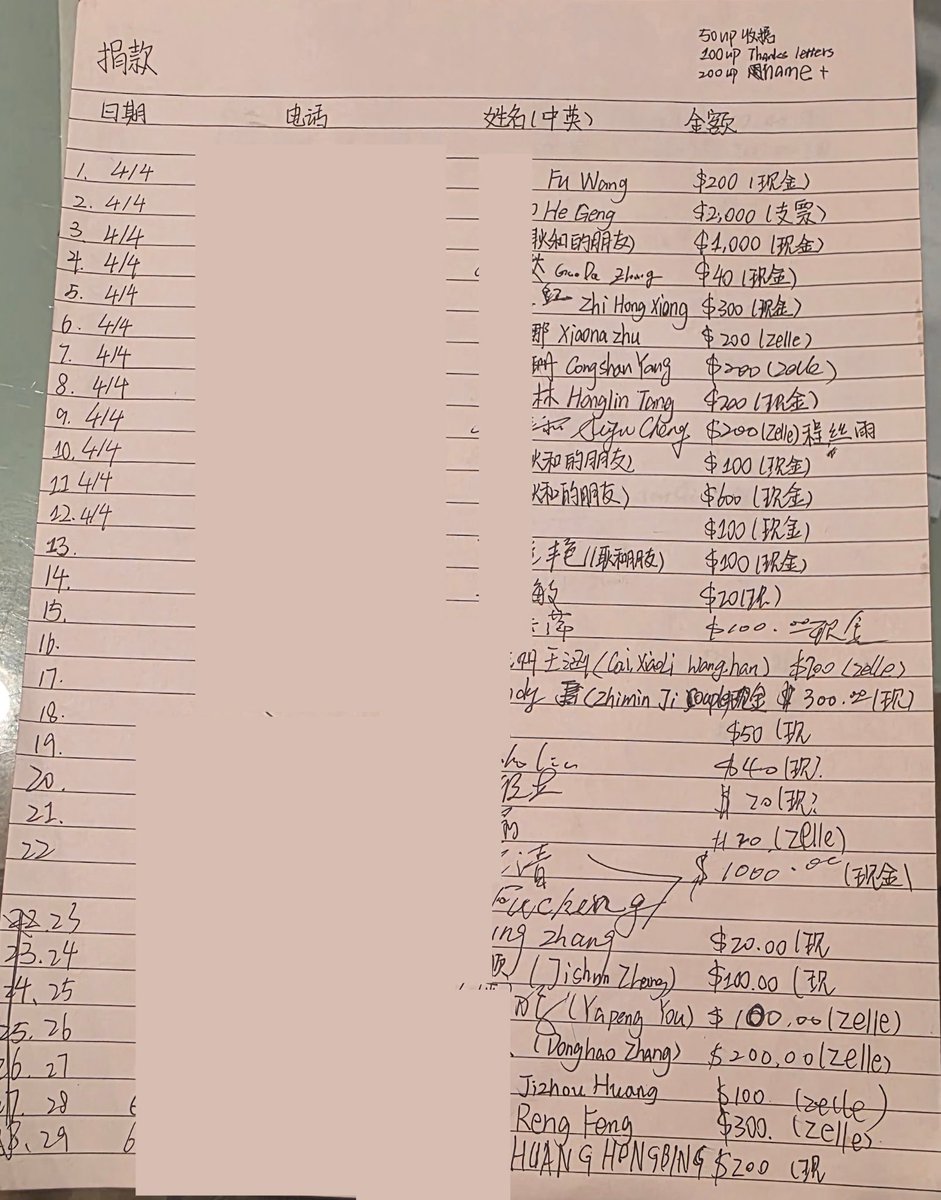 捐款
50 up 收据
100 up Thanks letters
200 up name +
日期 电话 姓名(中英) 金额
1. 4/4 Fu Wang $200 (现金)
2. 4/4 He Geng $2,000 (支票)
3. 4/4 耿和的朋友) $1,000 (现金)
4. 4/4 GuoDa Zhang $40 (现金)
5. 4/4 红 Zhi Hong Xiang $300 (现金)
6. 4/4 那 Xiaona Zhu $200 (Zelle)
7. 4/4 Congshan Yang $200 (Zelle)
8. 4/4 林 Honglin Tang $200 (现金)
9. 4/4 Siyu Cheng $200 (Zelle) 程丝雨
10. 4/4 耿和的朋友) $100 (现金)
11 4/4 耿和的朋友) $600 (现金)
12. 4/4 $100 (现金)
13. 艳 (耿和朋友) $100 (现金)
14. 敏 $20 (现)
15. $100.00 现金
16. 王涵 (Cai Xiaoli Wang han) $200 (Zelle)
17. (Zhimin Ji couple 现金 $300.00 (现)
18. $50 (现
19. $40 (现)
20. $20 (现)
21. 20 (Zelle)
22 清 $1000.00 (现金)
Fucheng
22.23 ing Zhang $20.00 (现
23.24 (Jishun Zhang) $100.00 (现
24.25 (Yapeng You) $100.00 (Zelle)
25.26 (Donghao Zhang) $200.00 (Zelle)
26.27 Jizhou Huang $100. (Zelle)
27.28 6 Reng Feng $300. (Zelle)
28.29 6 HUANG HONGBING $200 (现